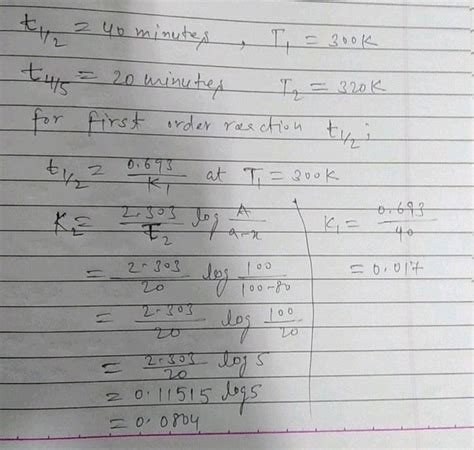 t1/2 = 40 minutes , T1 = 300K
t4/5 = 20 minutes T2 = 320K
for first order reaction t1/2 ;
t1/2 = 0.693/K1 at T1 = 300K
K2 = 2.303/t2 log A/a-x
= 2.303/20 log 100/100-80
= 2.303/20 log 100/20
= 2.303/20 log 5
= 0.11515 log5
= 0.0804
K1 = 0.693/40
= 0.017